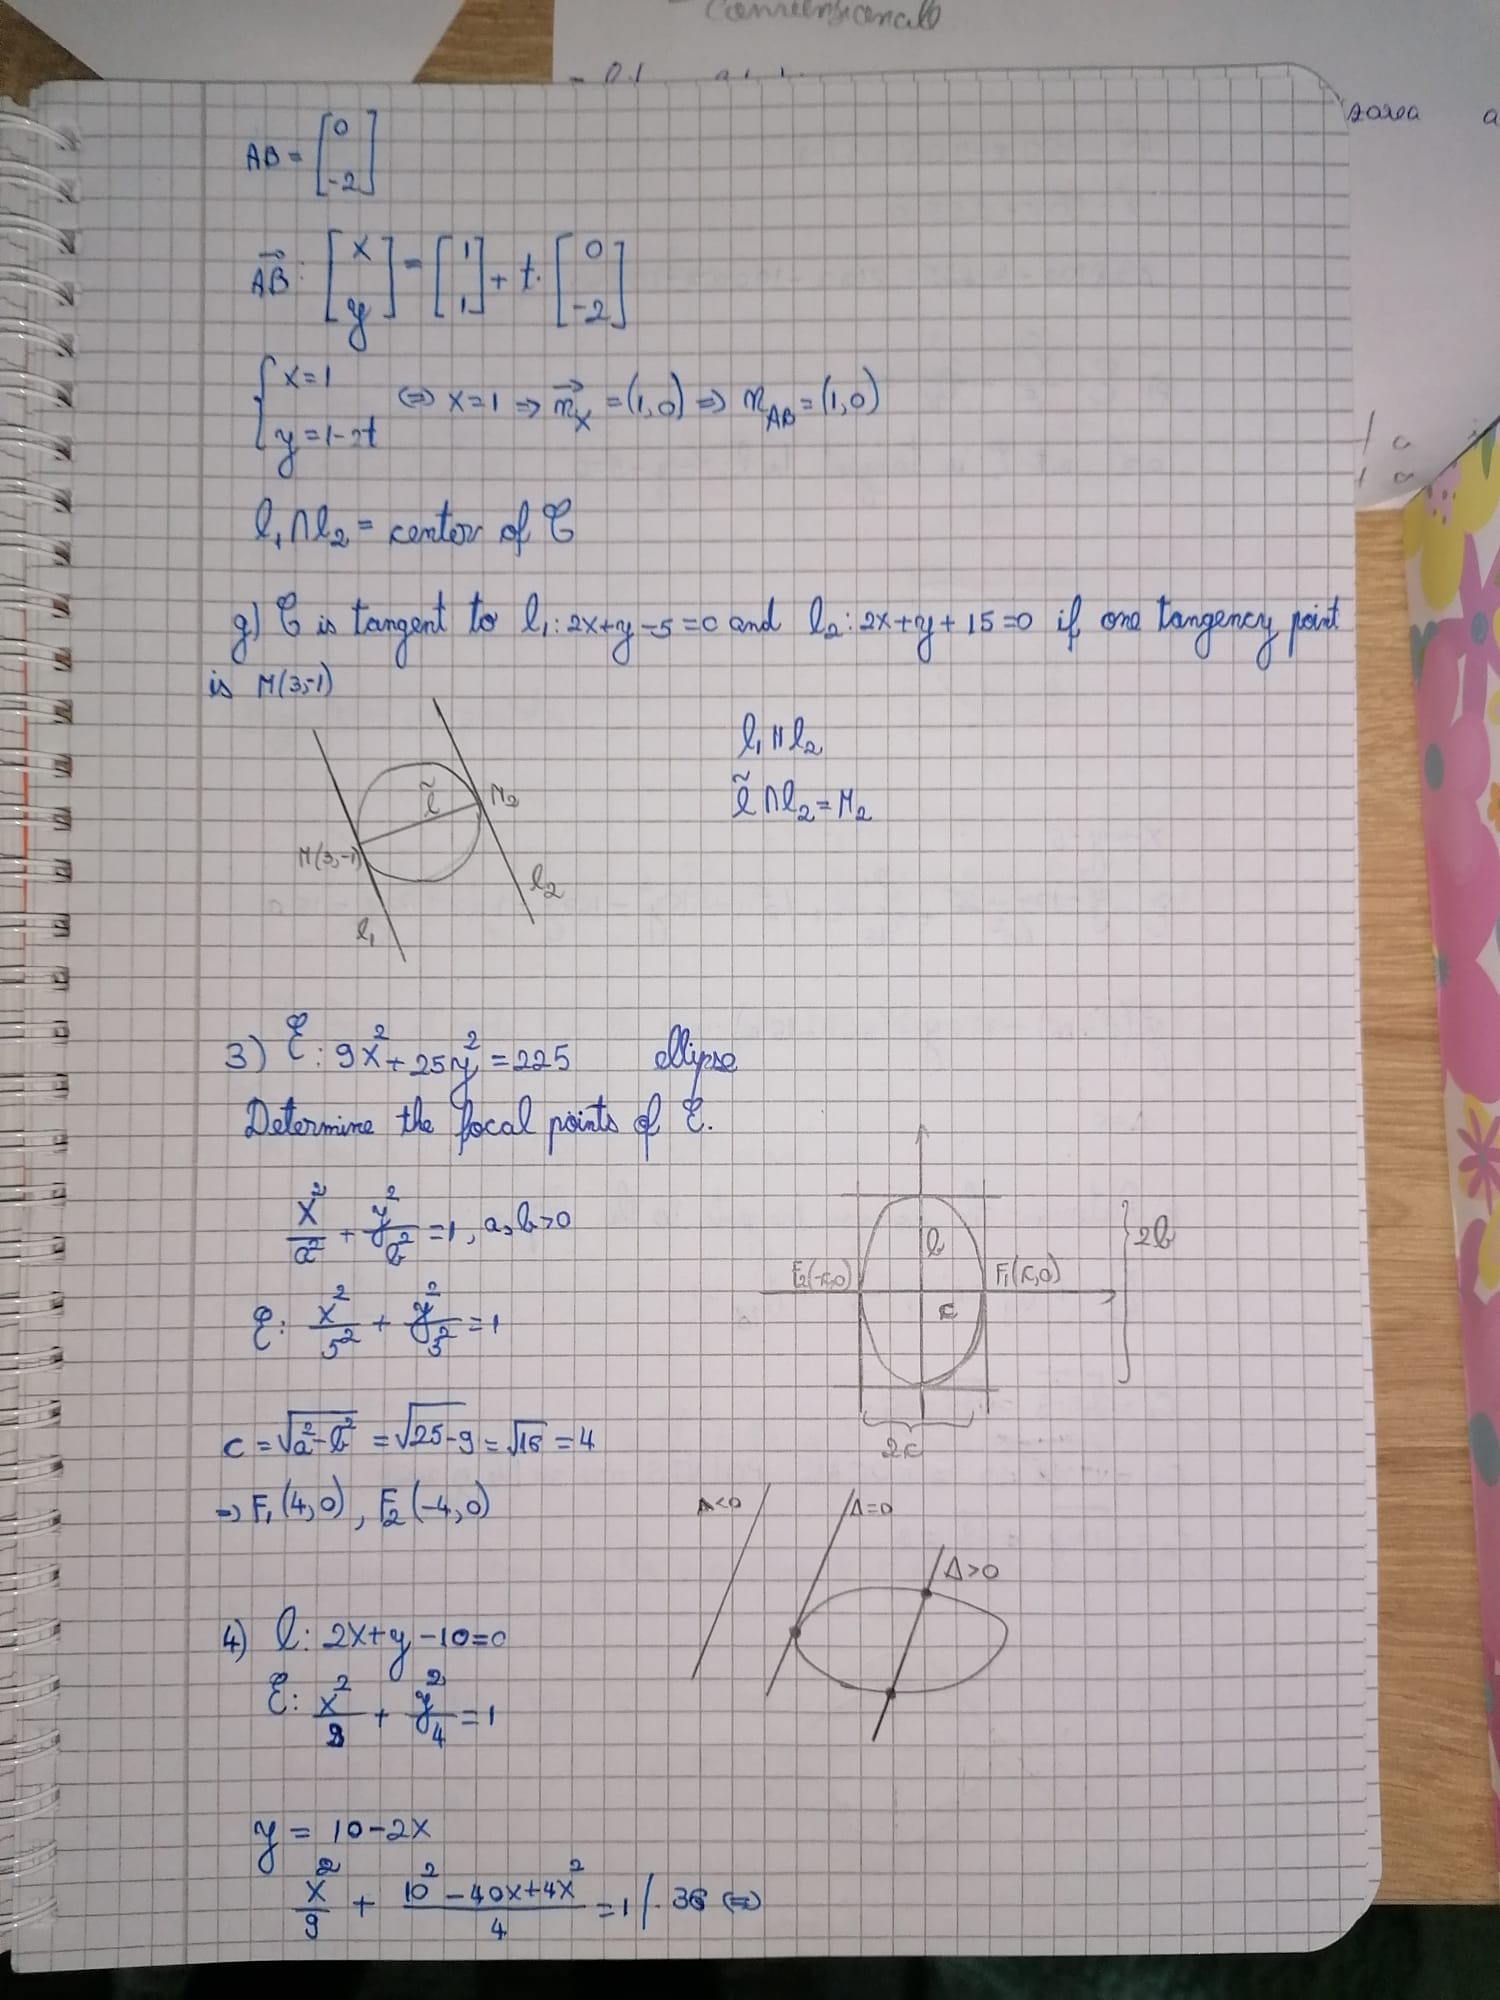 Conven
AB = [0 -2]
AB: [x y] = [1 1] + t· [0 -2]
{ x=1
y=1-2t
⇔ x=1 ⇒ n⃗x = (1,0) ⇒ nAB = (1,0)
l₁∩l₂ = center of C
g) C is tangent to l₁: 2x+y-5=0 and l₂: 2x+y+15=0 if one tangency point
is M(3,-1)
l₁ ∥ l₂
l̃ ∩ l₂ = M₂
l̃
M₂
M(3,-1)
l₂
l₁
3) E: 9x²+25y²=225 ellipse
Determine the focal points of E.
x²/a² + y²/b² = 1, a,b>0
b
2b
F₂(-c,0)
F₁(c,0)
c
2c
E: x²/5² + y²/3² = 1
c = √a²-b² = √25-9 = √16 = 4
⇒ F₁(4,0), F₂(-4,0)
Δ<0
Δ=0
Δ>0
4) l: 2x+y-10=0
E: x²/9 + y²/4 = 1
y = 10-2x
x²/9 + 10²-40x+4x²/4 = 1 /· 36 ⇔